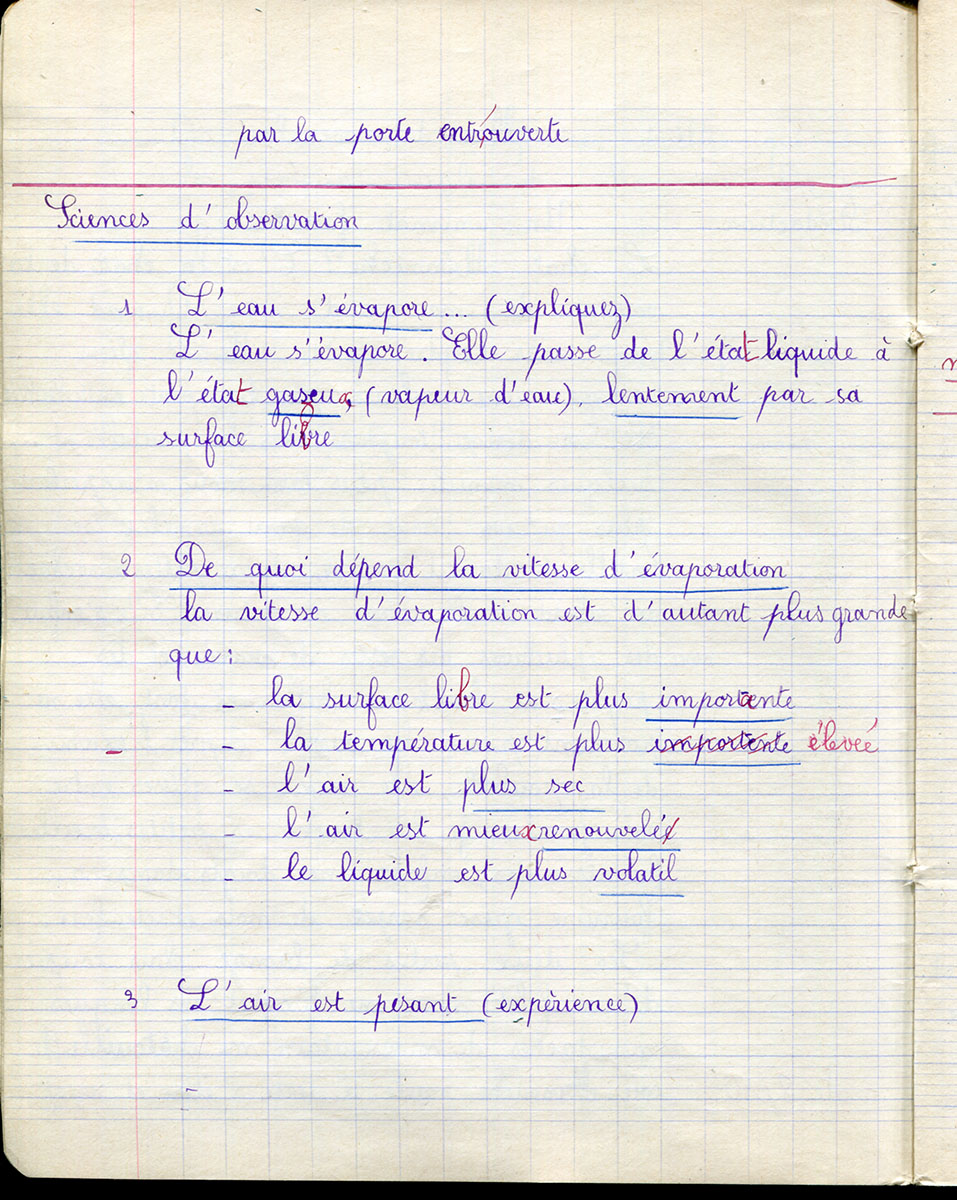 par la porte entrouverte
Sciences d'observation
1 L'eau s'évapore... (expliquez)
L'eau s'évapore. Elle passe de l'état liquide à
l'état gazeux, (vapeur d'eau), lentement par sa
surface libre
2 De quoi dépend la vitesse d'évaporation
la vitesse d'évaporation est d'autant plus grande
que :
- la surface libre est plus importante
- - la température est plus importente élevée
- l'air est plus sec
- l'air est mieux renouvelé
- le liquide est plus volatil
3 L'air est pesant (expèrience)
-